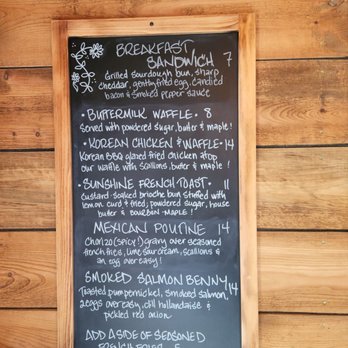 BREAKFAST
SANDWICH 7
Grilled sourdough bun, sharp
cheddar, gently fried egg, candied
bacon & smoked pepper sauce
• BUTTERMILK WAFFLE • 8
Served with powdered sugar, butter & maple!
• KOREAN CHICKEN & WAFFLE • 14
Korean BBQ glazed fried chicken atop
our waffle with scallions, butter & maple!
• SUNSHINE FRENCH TOAST • 11
Custard soaked brioche bun stuffed with
lemon curd & fried; powdered sugar, house
butter & BOURBON MAPLE!
MEXICAN POUTINE 14
Chorizo (spicy!) gravy over seasoned
french fries, lime sour cream, scallions &
an egg over easy!
SMOKED SALMON BENNY 14
Toasted pumpernickel, smoked salmon,
2 eggs over easy, dill hollandaise &
pickled red onion
ADD A SIDE OF SEASONED
FRENCH FRIES 5